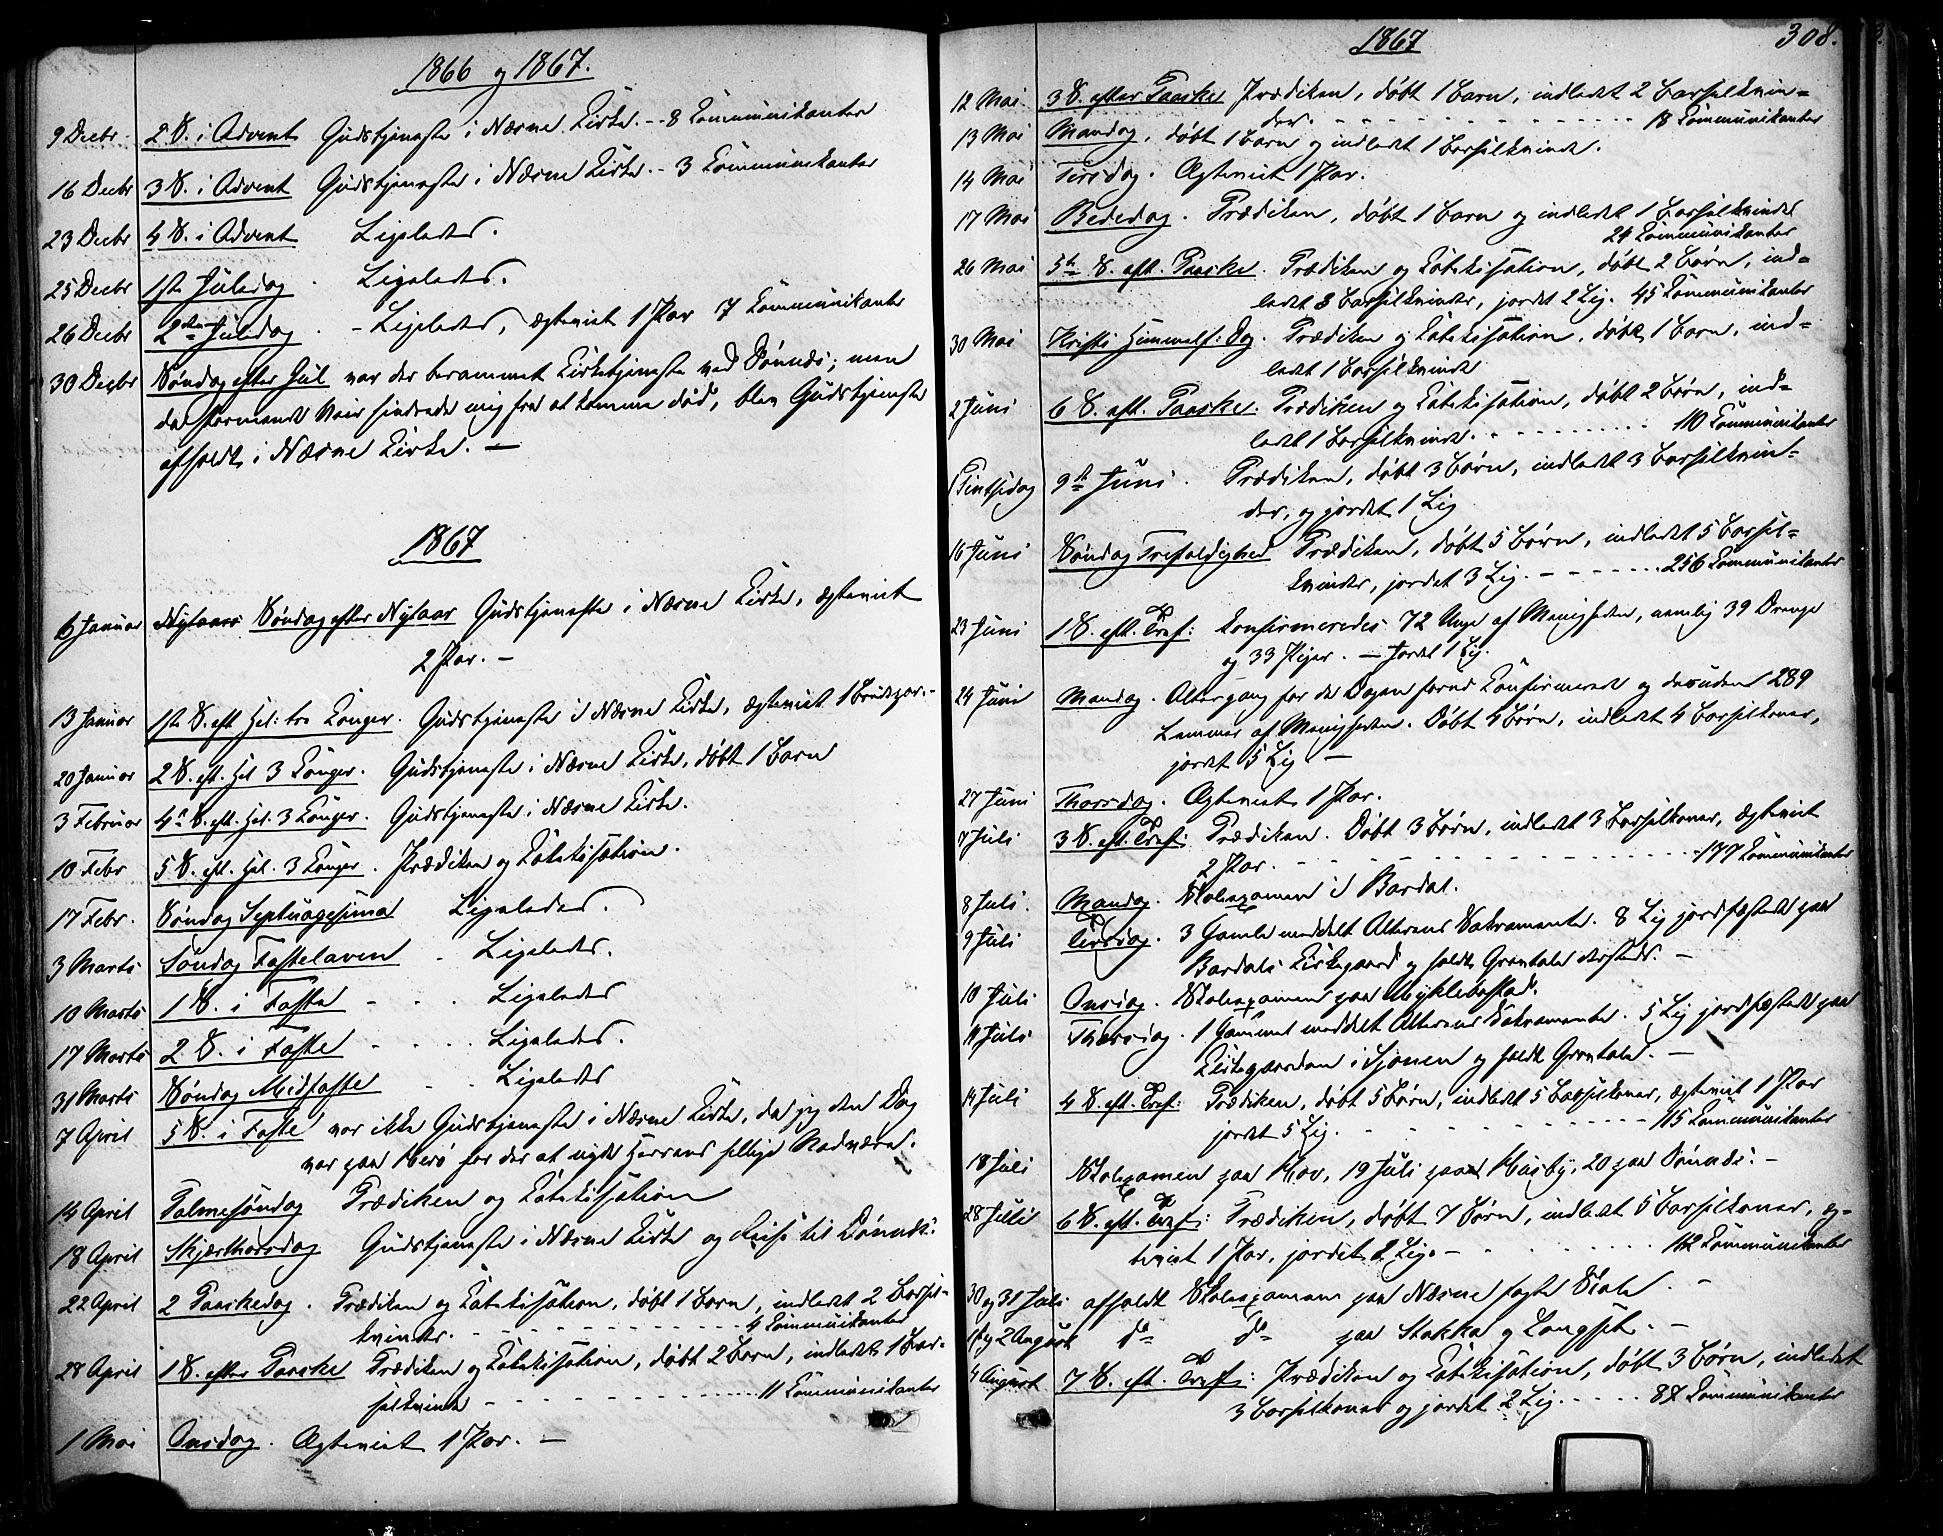 1866 og 1867.
9 Decbr. 2 S. i Advent Gudstjeneste i Næsne Kirke. - 8 Kommunikanter
16 Decbr 3 S. i Advent Gudstjeneste i Næsne Kirke. - 3 Kommunikanter
23 Decbr 4 S. i Advent Ligeledes.
25 Decbr 1ste Juledag. Ligeledes.
26 Decbr 2den Juledag. - Ligeledes, ægteviet 1 Par 7 Kommunikanter
30 Decbr Søndag efter Jul var der berammet Kirketjeneste ved Dønnæs; men
da stormende Veir hindrede mig fra at komme did, blev Gudstjeneste
afholdt i Næsne Kirke. —
1867
6 Januar Nytaars Søndag efter Nytaar Gudstjeneste i Næsne Kirke, ægteviet
2 Par. —
13 Januar 1ste S. eft Hel: tre Konger. Gudstjeneste i Næsne Kirke, ægteviet 1 Brudepar. -
20 Januar 2 S. eft. Hel 3 Konger. Gudstjeneste i Næsne Kirke, døbt 1 Barn
3 Februar 4de S. eft. Hel. 3 Konger. Gudstjeneste i Næsne Kirke.
10 Febr 5 S. eft. Hel. 3 Konger. Prædiken og Katekisation.
17 Febr. Søndag Septuagesima Ligeledes.
3 Marts Søndag Fastelaven. Ligeledes.
10 Marts 1 S. i Faste - . . Ligeledes
17 Marts 2 S. i Faste - . . . Ligeledes.
31 Marts Søndag Midfaste . . Ligeledes
7 April 5 S. i Faste var ikke Gudstjeneste i Næsne Kirke, da jeg den Dag
var paa Herø for der at nyde Herrens hellige Nadvære.
14 April Palmesøndag Prædiken og Katekisation
18 April Skjærthorsdag Gudstjeneste i Næsne Kirke og Reise til Dønnæs:
22 April 2 Paaskedag. Prædiken og Katekisation, døbt 1 Barn, indledt 2 Barsel-
kvinder. - - - - - 4 Kommunikanter
28 April 1 S. efter Paaske Prædiken og Katekisation, døbt 2 Børn, indledt 1 Bar-
selkvinde - - - - - 11 Kommunikanter
1 Mai Onsdag. Ægteviet 1 Par. —
1867 308.
12 Mai 3 S. efter Paaske Prædiken, døbt 1 Barn, indledt 2 Barselkvin-
der. - - - - - 18 Kommunikanter
13 Mai Mandag, døbt 1 Barn og indledt 1 Barselkvinde.
14 Mai Tirsdag. Ægteviet 1 Par.
17 Mai Bededag. Prædiken, døbt 1 Barn og indledt 1 Barselkvinde
24 Kommunikanter
26 Mai 5te S. eft. Paaske. Prædiken og Katekisation, døbt 2 Børn, ind-
ledt 3 Barselkvinder, jordet 2 Lig. 45 Kommunikanter
30 Mai Kristi Himmelf: Dag. Prædiken og Katekisation, døbt 1 Barn, ind-
ledt 1 Barselkvinde
2 Juni 6 S. eft. Paaske. Prædiken og Katekisation, døbt 2 Børn, ind-
ledt 1 Barselkvinde. - - - - 110 Kommunikanter
1 Pintsedag 9de Juni. Prædiken, døbt 3 Børn, indledt 3 Barselkvin-
der, og jordet 1 Lig
16 Juni Søndag Trefoldighed Prædiken, døbt 5 Børn, indledt 5 Barsel-
kvinder, jordet 3 Lig. - - - - 256 Kommunikanter
23 Juni 1 S. eft. Tref: Konfirmeredes 72 Unge af Menigheden, nemlig 39 Drenge
og 33 Piger. — Jordet 1 Lig.
24 Juni Mandag. Altergang for de Dagen forud Konfirmerede og desuden 289
Lemmer af Menigheden. Døbt 4 Børn, indledt 4 Barselkoner,
jordet 5 Lig —
27 Juni Thorsdag. Ægteviet 1 Par.
7 Juli 3 S. eft. Tref: Prædiken. Døbt 3 Børn, indledt 3 Barselkoner, ægteviet
2 Par. - - - - - 177 Kommunikanter
8 Juli. Mandag. Skoleexamen i Bardal.
9 Juli Tirsdag. 3 Gamle meddelt Alterens Sakramente. 8 Lig jordfæstede paa
Bardals Kirkegaard og holdt Gravtale dersteds. —
10 Juli Onsdag. Skoleexamen paa Myklebostad.
11 Juli Thorsdag. 1 Gammel meddelt Alterens Sakramente. 5 Lig jordfæstede paa
Kirkegaarden i Sjonen og holdt Gravtale. —
14 Juli 4 S. eft. Tref: Prædiken, døbt 5 Børn, indledt 5 Barselkoner, ægteviet 1 Par
jordet 5 Lig. - - - - - 115 Kommunikanter
18 Juli Skolexamen paa Hov, 19 Juli paa Husby, 20 paa Dønnæs. -
28 Juli 6 S. eft. Tref: Prædiken, døbt 7 Børn, indledt 5 Barselkoner, æg-
teviet 1 Par, jordet 2 Lig. - - - - 142 Kommunikanter
30 og 31 Juli afholdt Skoleexamen paa Næsne faste Skole. -
1 og 2 August do do paa Stokka og Langset. -
4 August 7 S. eft. Tref: Prædiken og Katekisation, døbt 3 Børn, indledet
3 Barselkoner og jordet 2 Lig. - - - 87 Kommunikanter